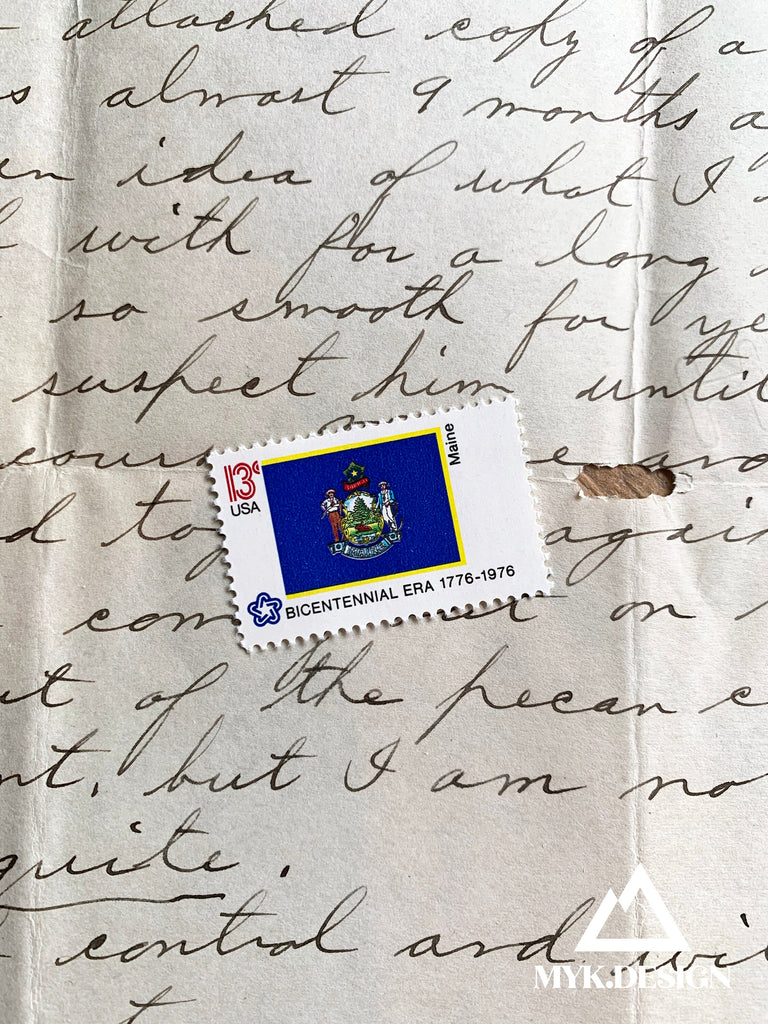 attached copy of a
s almost 9 months a
an idea of what I
with for a long
so smooth for ye
suspect him until
cours
e and
d to
again
13c
USA
Maine
MAINE
BICENTENNIAL ERA 1776-1976
com
on
ut of the pecan c
nt, but I am no
quite.
control and wi
MYK.DESIGN